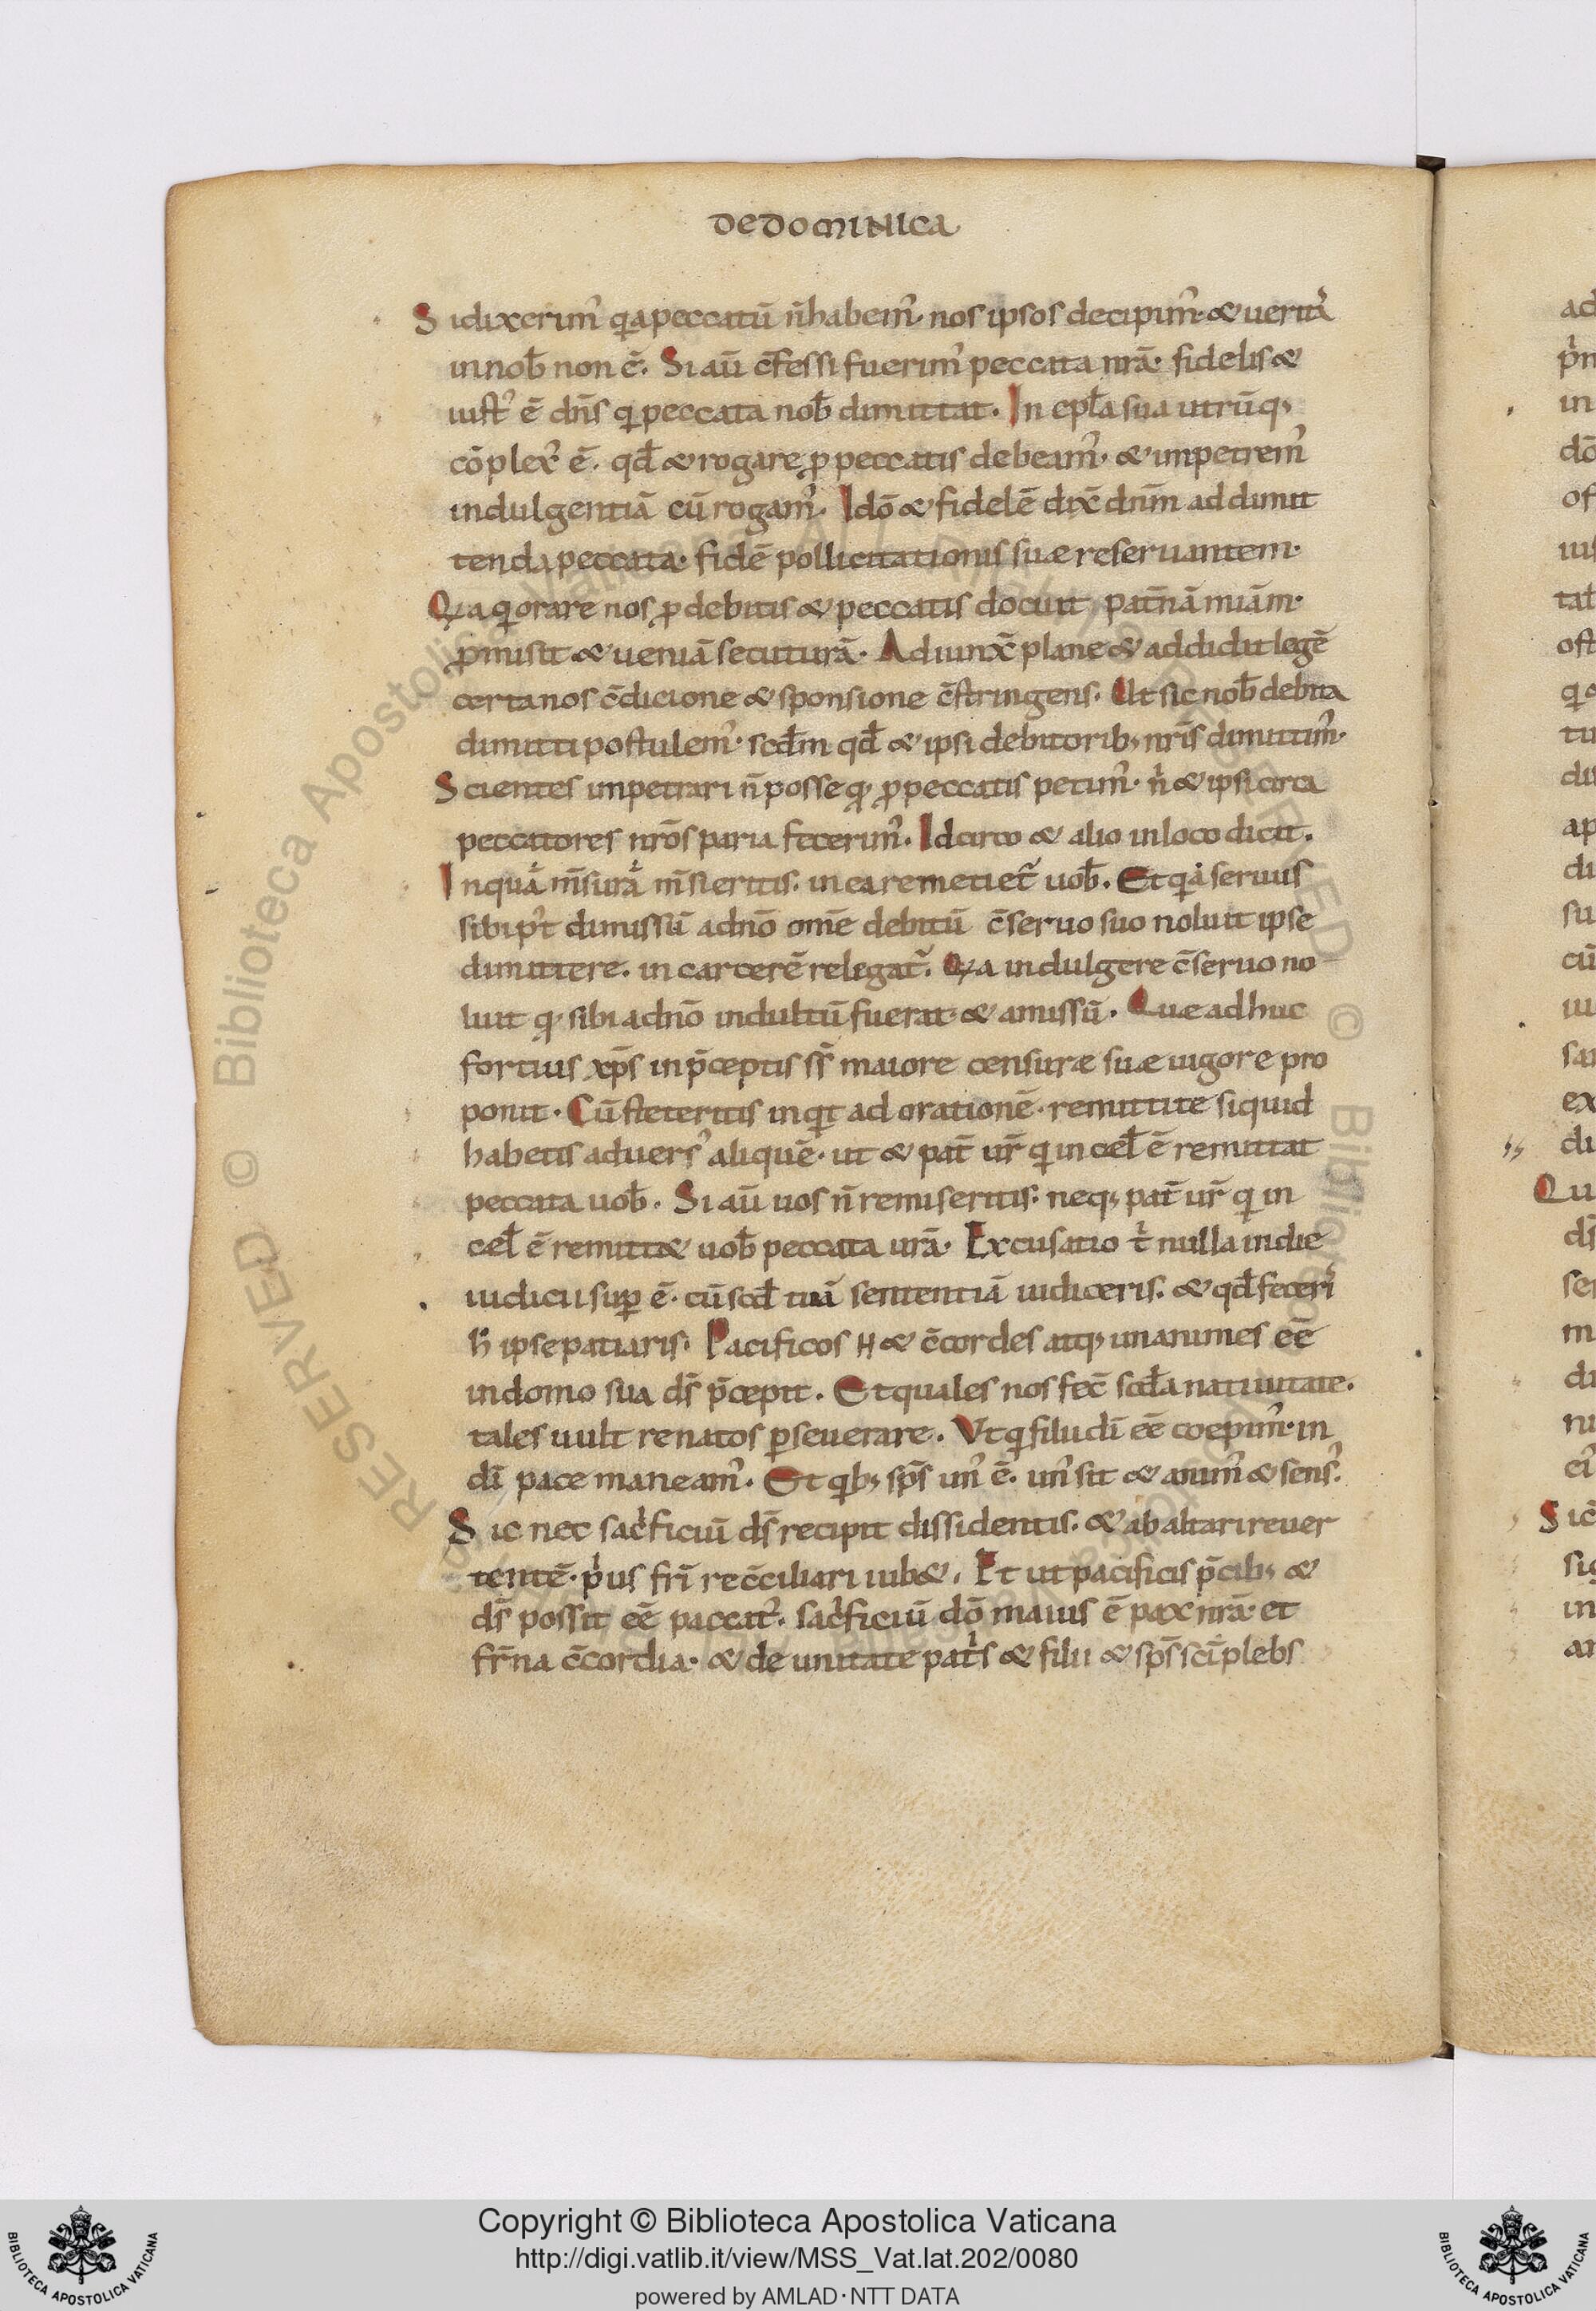 DE DOMINICA
Si dixerim᾽ q̣a peccatū n̄ habem᾽ nos ipsos decipim᾽ & uerita᾽
in nob̄ non ē. Si aū c̄fessi fuerim᾽ peccata nr̄a· fidelis &
iust᾽ ē dn̄s q̣ peccata nob̄ dimittat. In epl̄a sua utrūq;
cōplex᾽ ē. qd̄ & rogare ꝓ peccatis debeam᾽· & impetrem᾽
indulgentiā cū rogam᾽. Idō & fidelē dix̄ dnīm ad dimit
tenda peccata· fidē pollicitationis suæ reseruantem·
Qa q̣ orare nos ꝓ debitis & peccatis docuit, pat̄nā miām·
ꝓmisit & ueniā secuturā· Adiunx̄ plane & addidit legē
certa nos c̄dicione & sponsione c̄stringens. Ut sic nob̄ debita
dimitti postulem᾽· scd̄m qd̄ & ipsi debitorib; nr̄is dimittim᾽·
Scientes impetrari n̄ posse q̣ ꝓ peccatis petim᾽· n᾽ & ipsi circa
peccatores nrōs paria fecerim᾽. Idcirco & alio in loco dicit.
In qua᾽ m̄sura᾽ m̄si eritis. in ea remetiet᾽ uob̄. Et q̣a seruus
sibi p᾽t dimissū adnō om̄e debitū c̄seruo suo noluit ipse
dimittere. in carcerē relegat᾽. Qa indulgere c̄seruo no
luit q̣ sibi adnō indultū fuerat & amissū. Quæ adhuc
fortius xp̄s in p̄ceptis ss᾽ maiore censuræ suæ uigore pro
ponit. Cū steteritis inq̣t ad orationē· remittite siquid
habetis aduers᾽ aliquē· ut & pat̄ ur̄ q̣ in cel̄ ē remittat
peccata uob̄. Si aū uos n̄ remiseritis: neq; pat̄ ur̄ q̣ in
cel̄ ē remitt& uob̄ peccata urā· Excusatio t᾽ nulla in die
iudicii suꝑ ē· cū scd̄ tuā sententiā iudiceris. & qd̄ feceris
h̄ ipse patiaris. Pacificos H & c̄cordes atq; unanimes eē
in domo sua ds̄ p̄cepit. Et quales nos fec̄ scd̄a natiuitate.
tales uult renatos ꝑseuerare. Vt q̣ filii dī eē coepim᾽· in
dī pace maneam᾽. Et q̣b; sp̄s un᾽ ē. un᾽ sit & anim᾽ & sens᾽.
Sic nec sac᾽ficiū ds̄ recipit dissidentis. & ab altari reuer
tentē· p᾽us fr̄i rec̄ciliari iub&. Et ut pacificis p̄cib; &
ds̄ possit eē paccat᾽. sac᾽ficiū dō maius ē pax nr̄a· et
fr̄na c̄cordia· & de unitate pat᾽s & filii & sp̄s sci᾽ plebs
Copyright © Biblioteca Apostolica Vaticana
http://digi.vatlib.it/view/MSS_Vat.lat.202/0080
powered by AMLAD·NTT DATA